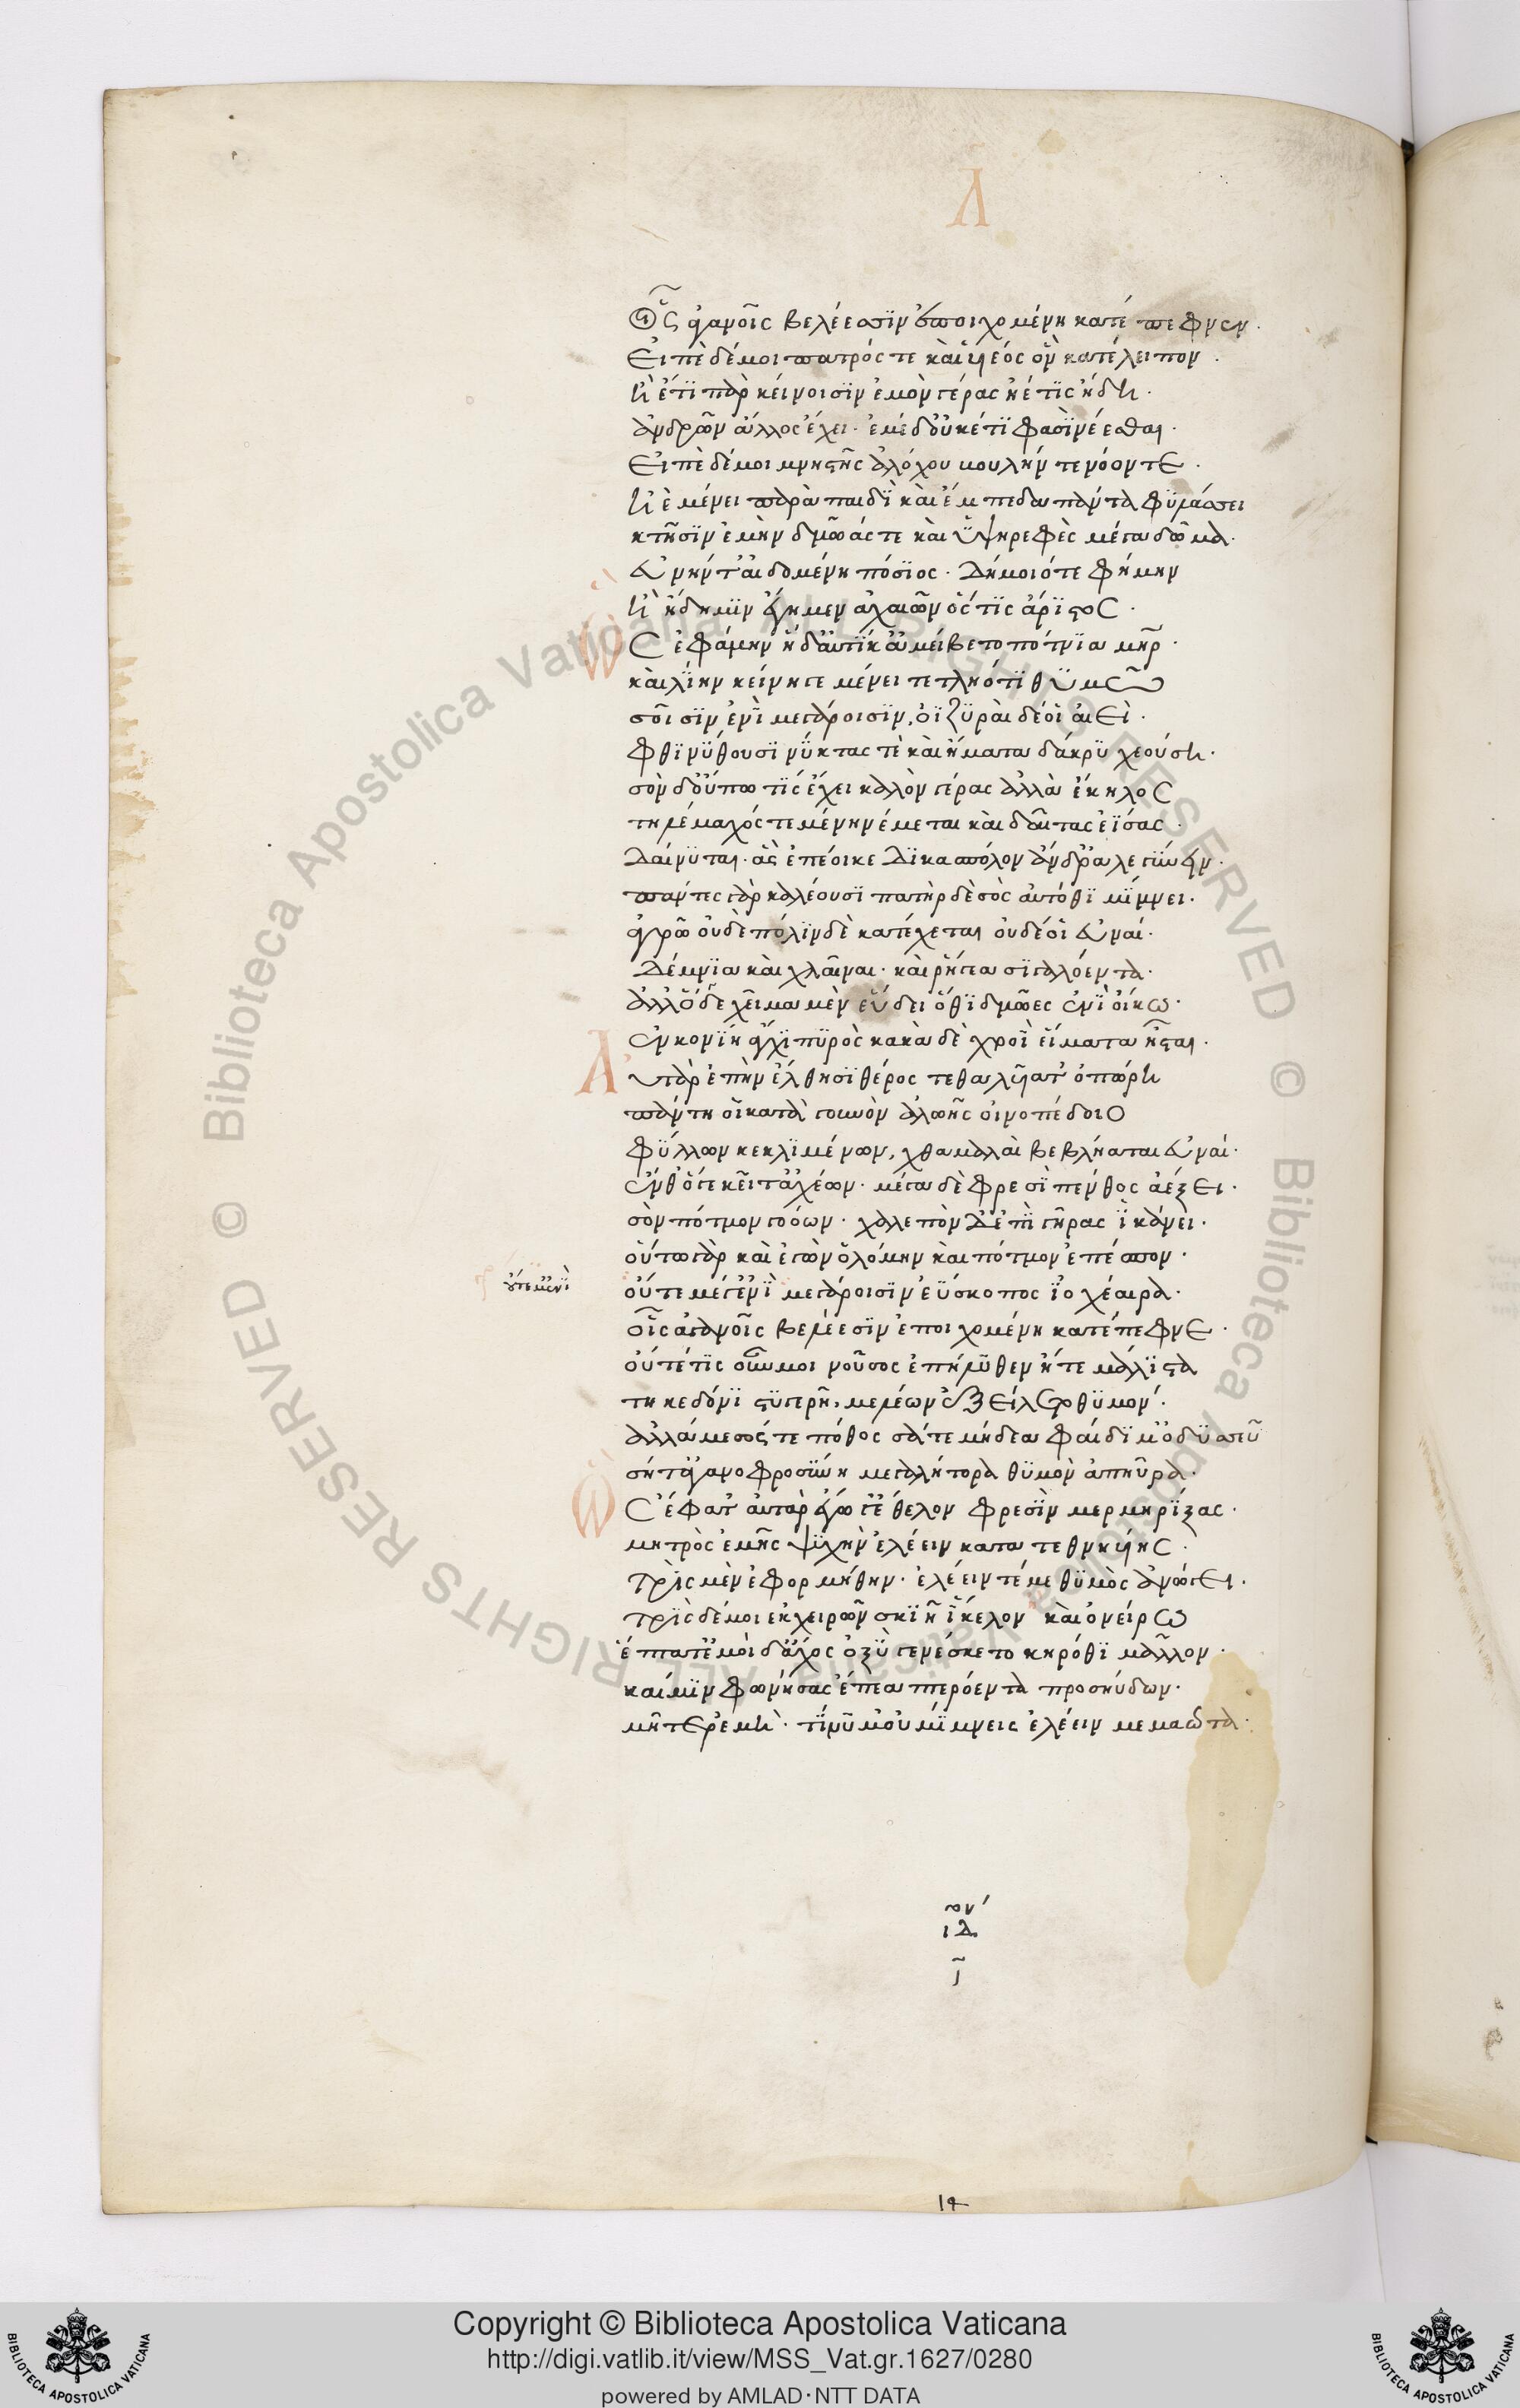 Λ
οἷς ἀγανοῖς βελέεσσιν ἐποιχομένη κατέπεφνεν.
εἰπὲ δέ μοι πατρός τε καὶ υἱέος ὃν κατέλειπον.
ἢ ἔτι πὰρ κείνοισιν ἐμὸν γέρας ἠέ τις ἤδη.
ἀνδρῶν ἄλλος ἔχει. ἐμὲ δ' οὐκέτι φασὶ νέεσθαι.
εἰπὲ δέ μοι μνηστῆς ἀλόχου βουλήν τε νόον τε.
ἠὲ μένει παρὰ παιδὶ καὶ ἔμπεδα πάντα φυλάσσει
κτῆσιν ἐμὴν δμῶάς τε καὶ ὑψηρεφὲς μέγα δῶμα.
εὐνήν τ' αἰδομένη πόσιος. δήμοιό τε φήμην
ἢ ἤδη μιν ἔγημεν ἀχαιῶν ὅς τις ἄριστος.
Ὣς ἐφάμην ἡ δ' αὐτίκ' ἀμείβετο πότνια μηρ.
καὶ λίην κείνη γε μένει τετληότι θυμῶ
σοῖσιν ἐνὶ μεγάροισιν, ὀιζυραὶ δέ οἱ αἰεὶ.
φθινύθουσι νύκτας τὲ καὶ ἤματα δάκρυ χεούσῃ.
σὸν δ' οὔπω τίς ἔχει καλὸν γέρας ἀλλὰ ἕκηλος
τηλέμαχός τεμένη νέμεται καὶ δαῖτας ἐΐσας.
δαίνυται. ἃς ἐπέοικε δικασπόλον ἄνδρα λεγύνειν.
πάντες γὰρ καλέουσι πατὴρ δὲ σὸς αὐτόθι μίμνει.
ἀγρῶ οὐδὲ πόλινδε κατέχεται οὐδέ οἱ εὐναί.
δέμνια καὶ χλαῖναι. καὶ ῥήγεα σιγαλόεντα.
ἀλλ' ὅ γε χεῖμα μὲν εὕδει ὅθι δμῶες ἐνὶ οἴκω.
ἐν κονίη ἄγχι πυρὸς κακὰ δὲ χροῒ εἵματα ἧσται.
Αὐτὰρ ἐπὴν ἔλθησι θέρος τεθαλυῖά τ' ὀπώρη
πάντη οἱ κατὰ γουνὸν ἀλωῆς οἰνοπέδοιο
φύλλων κεκλιμένων, χθαμαλαὶ βεβλήαται εὐναί.
ἔνθ' ὅ γε κεῖτ' ἀχέων. μέγα δὲ φρεσὶ πένθος ἀέξει.
σὸν πότμον γοόων. χαλεπὸν δ' ἐπὶ γῆρας ἱκάνει.
οὕτω γὰρ καὶ ἐγὼν ὀλόμην καὶ πότμον ἐπέσπον.
οὔτε μέ γ' ἐνὶ μεγάροισιν ἐΰσκοπος ἰοχέαιρα.
οἷς ἀγανοῖς βελέεσιν ἐποιχομένη κατέπεφνε.
οὔτέ τις οὖν μοι νοῦσος ἐπήλυθεν ἥτε μάλιστα
τηκεδόνι στυγερῇ, μελέων ἐξείλετο θυμόν.
ἀλλά με σός τε πόθος σά τε μήδεα φαίδιμ' ὀδυσσεῦ
σή τ' ἀγανοφροσύνη μελιηδέα θυμὸν ἀπηύρα.
Ὣς ἔφατ' αὐτὰρ ἐγώ γ' ἔθελον φρεσὶν μερμηρίξας.
μητρὸς ἐμῆς ψυχὴν ἑλέειν κατατεθνηυίης.
τρὶς μὲν ἐφορμήθην. ἑλέειν τέ με θυμὸς ἀνώγει.
τρὶς δέ μοι ἐκ χειρῶν σκιῆ ἴκελον καὶ ὀνείρω
ἔπτατ' ἐμοὶ δ' ἄχος ὀξὺ γενέσκετο κηρόθι μᾶλλον.
καί μιν φωνήσας ἔπεα πτερόεντα προσηύδων.
μῆτερ ἐμή. τί νύ μ' οὐ μίμνεις ἑλέειν μεμαῶτα.
14
Copyright © Biblioteca Apostolica Vaticana
http://digi.vatlib.it/view/MSS_Vat.gr.1627/0280
powered by AMLAD·NTT DATA
BIBLIOTECA APOSTOLICA VATICANA
BIBLIOTECA APOSTOLICA VATICANA
© Biblioteca Apostolica Vaticana ALL RIGHTS RESERVED © Biblioteca Apostolica Vaticana ALL RIGHTS RESERVED